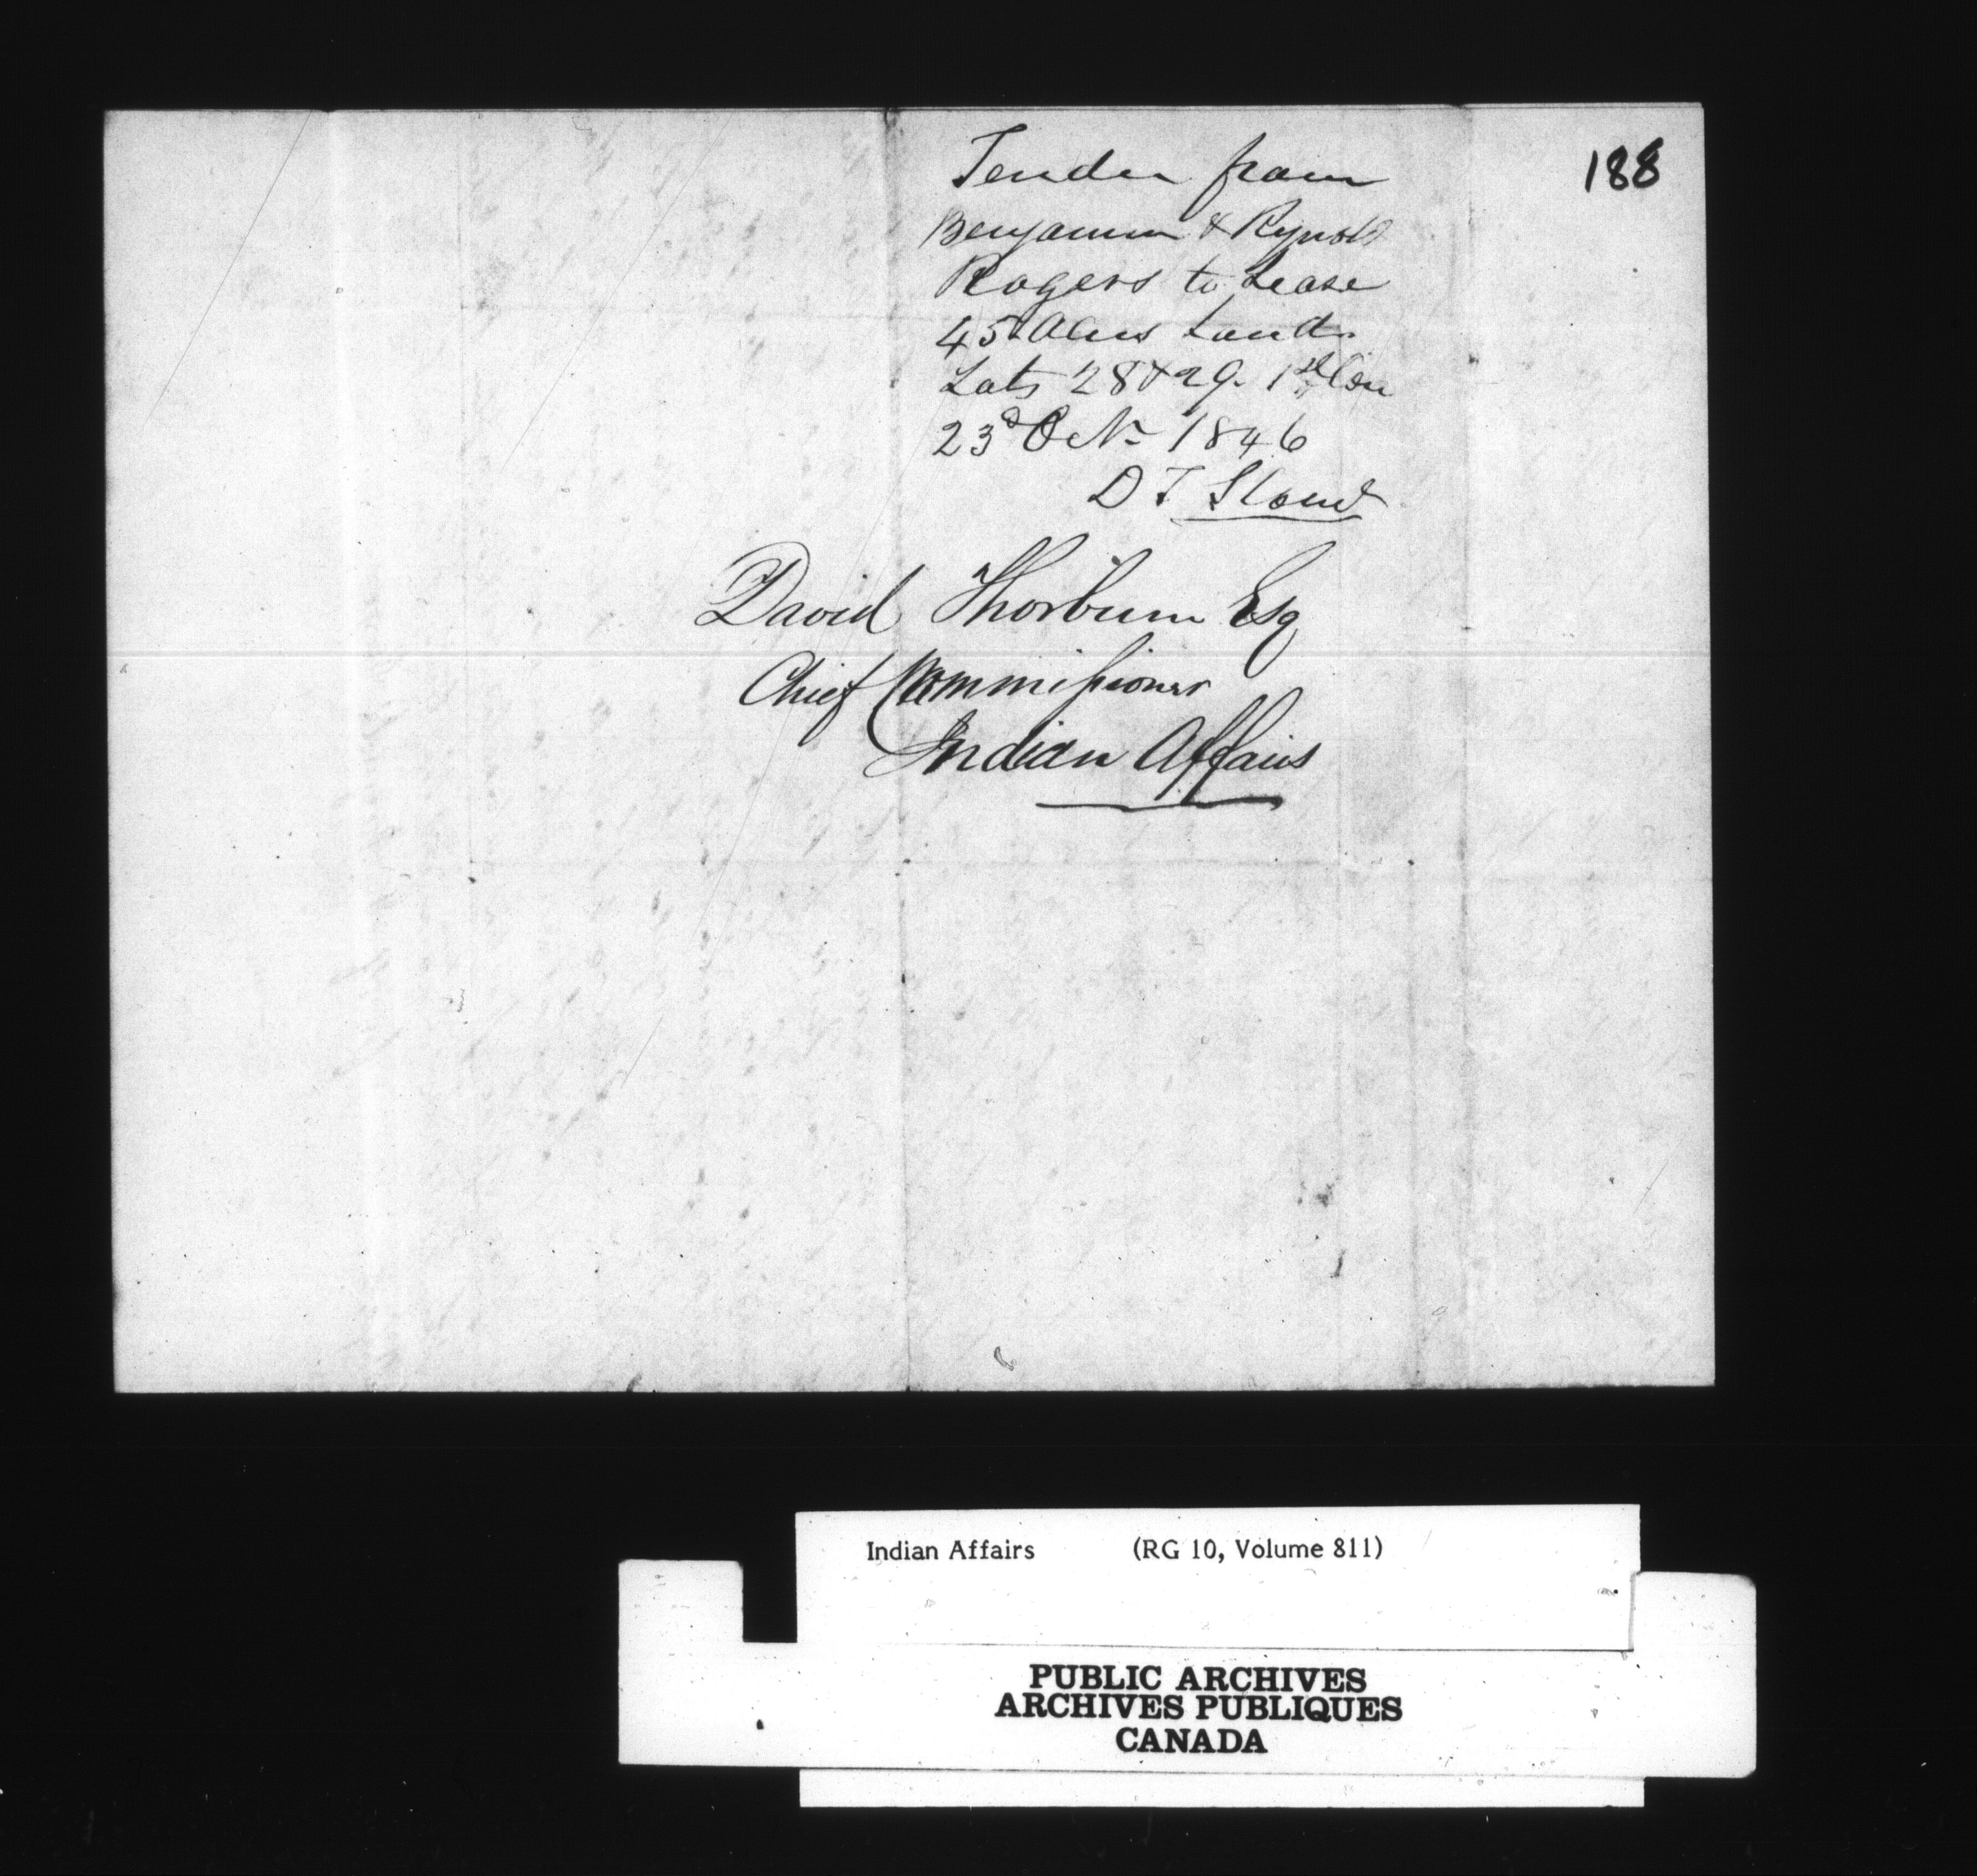 188
Tender from
Benjamin & Rynold
Rogers to Lease
45 Acres Land
Lots 28 & 29. 1st Con
23d Oct 1846
D T
David Thorburn Esq
Chief Commissioner
Indian Affairs
Indian Affairs (RG 10, Volume 811)
PUBLIC ARCHIVES
ARCHIVES PUBLIQUES
CANADA